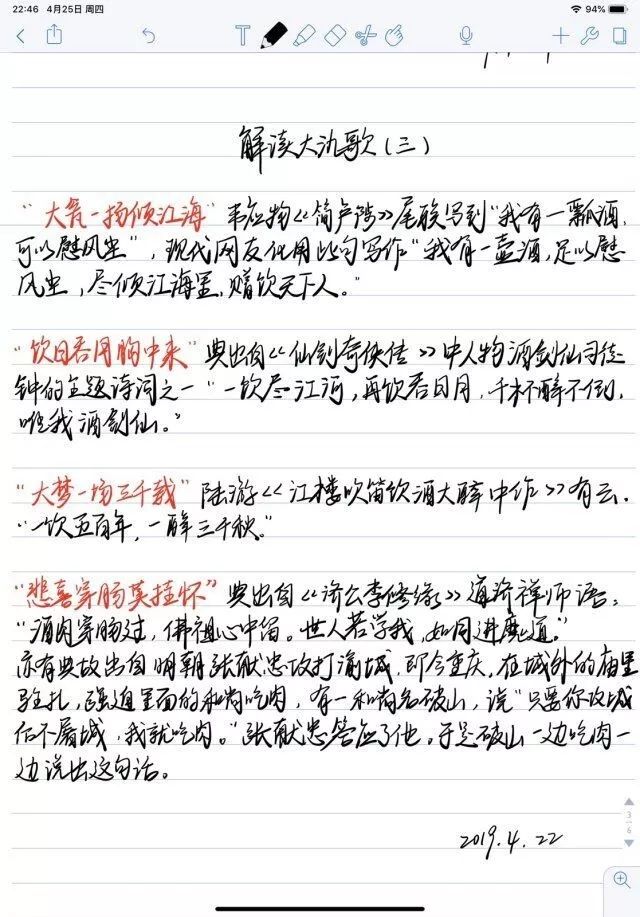 22:46 4月25日 周四
94%
T
解读大氿歌(三)
"大氿一扬倾江海" 韦应物《简卢陟》尾联写到"我有一瓢酒,
可以慰风尘",现代网友化用此句写作"我有一壶酒,足以慰
风尘,尽倾江海里,赠饮天下人。"
"饮日吞月胸中来" 典出自《仙剑奇侠传》中人物酒剑仙司徒
钟的主题诗词之一"一饮尽江河,再饮吞日月,千杯醉不倒,
唯我酒剑仙。"
"大梦一场三千载" 陆游《江楼吹笛饮酒大醉中作》有云.
"一饮五百年,一醉三千秋。"
"悲喜穿肠莫挂怀" 典出自《济公李修缘》道济禅师语:
"酒肉穿肠过,佛祖心中留。世人若学我,如同进魔道。"
亦有典故出自明朝张献忠攻打渝城,即今重庆,在城外的庙里
驻扎,强迫里面的和尚吃肉,有一和尚名破山,说"只要你攻城
后不屠城,我就吃肉。"张献忠答应了他。于是破山一边吃肉一
边说出这句话。
2019.4.22
3
6